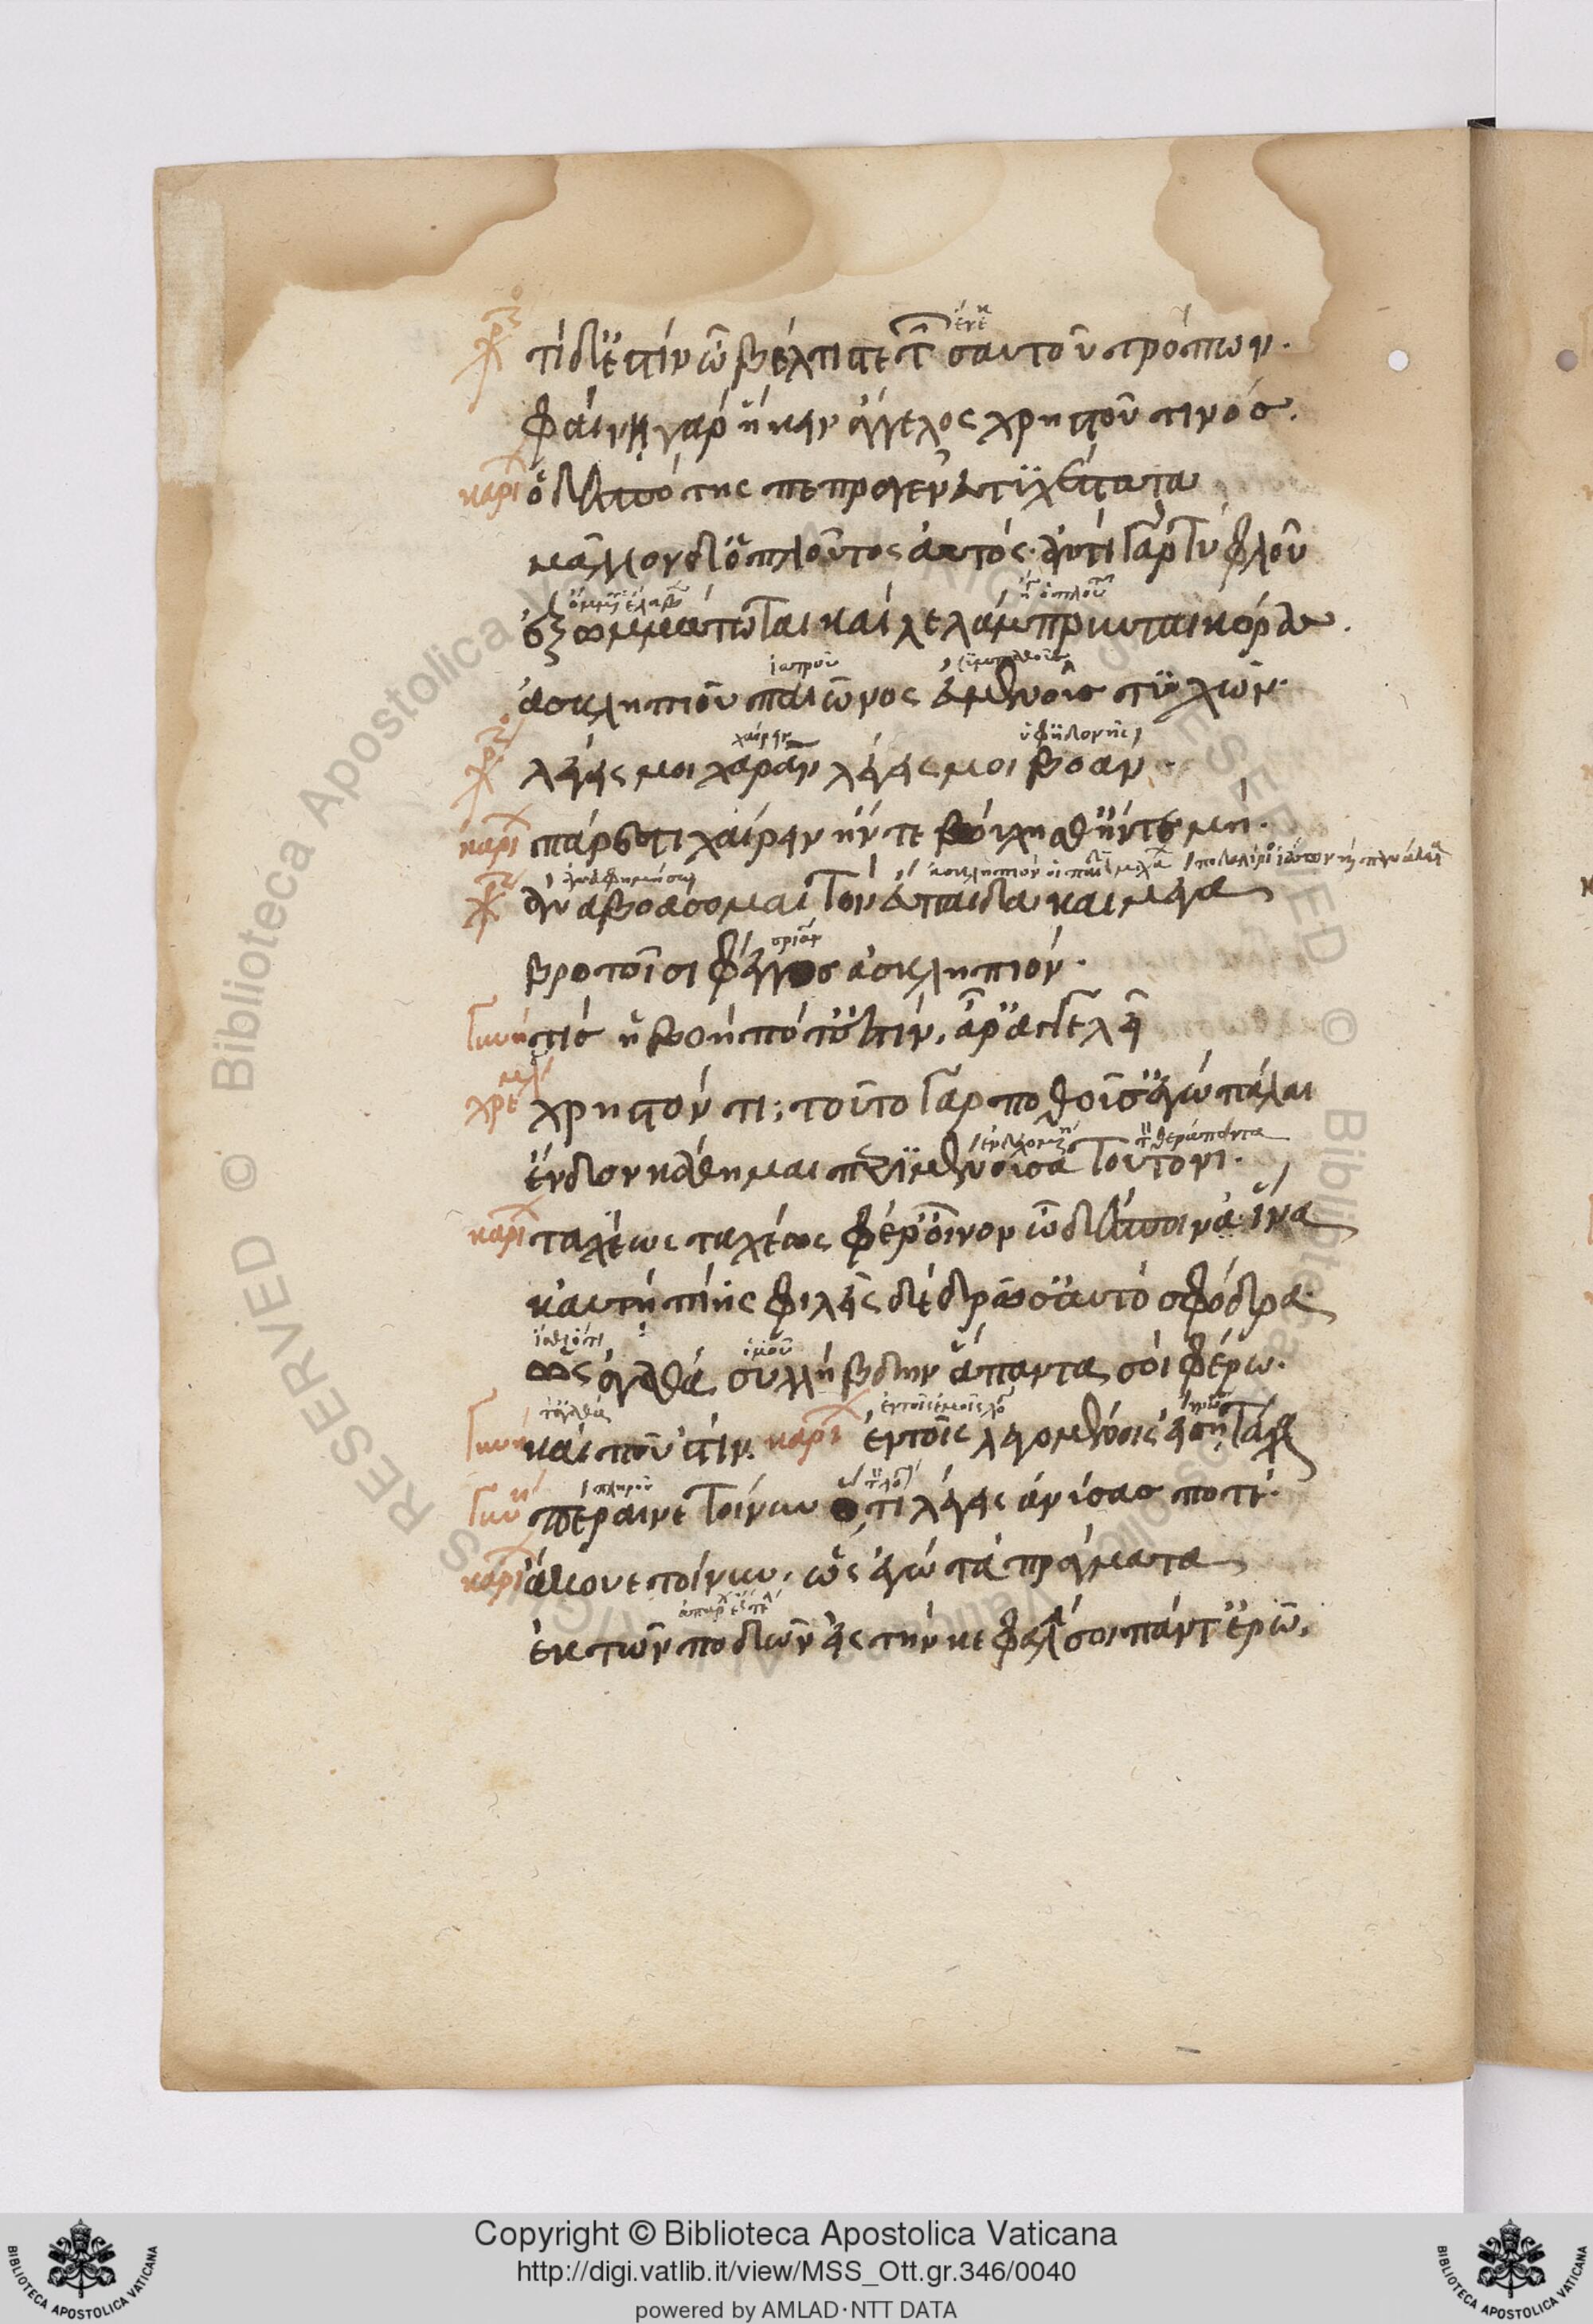 τί δ' ἔστιν ὦ βέλτιστε τῶν σαυτοῦ τρόπων.
φαίνῃ γὰρ ἥκειν ἄγγελος χρηστοῦ τινός.
καρί ὁ δεσπότης πέπραγεν εὐτυχέστατα
μᾶλλον δ' ὁ πλοῦτος αὐτός· ἀντὶ γὰρ τυφλοῦ
ἐξωμμάτωται καὶ λελάμπρυνται κόρας.
ἰατροῦ
ἀσκληπιοῦ παιῶνος εὐμενοῦς τυχών.
χαίρειν
λέγεις μοι χαράν λέγεις μοι βοάν.
καρί πάρεστι χαίρειν ἤν τε βούλησθ' ἤν τε μή.
ἀναβοάσομαι τὸν εὔπαιδα καὶ μέγα
βροτοῖσι φέγγος ἀσκληπιόν.
γυνή τίς ἡ βοή ποτ' ἐστίν, ἆρ' ἀγγελεῖ
χρηστόν τι; τοῦτο γὰρ ποθοῦσ' ἐγὼ πάλαι
θεράποντα
ἔνδον κάθημαι περιμένουσα τουτονί.
καρί ταχέως ταχέως φέρ' οἶνον ὦ δέσποινα ἵνα
καυτὴ πίῃς φιλεῖς δὲ δρῶσ' αὐτὸ σφόδρα
ὁμοῦ
ὡς ἀγαθά συλλήβδην ἅπαντά σοι φέρω.
τἀγαθά
γυνή καὶ ποῦ 'στιν. καρί ἐν τοῖς λεγομένοις εἴσῃ τάχα
γυνή πέραινε τοίνυν ὅ,τι λέγεις ἁνύσας ποτέ.
καρί ἄκουε τοίνυν, ὡς ἐγὼ τὰ πράγματα
ἐκ τῶν ποδῶν εἰς τὴν κεφαλήν σοι πάντ' ἐρῶ.
RESERVED © Biblioteca Apostolica Vaticana
Copyright © Biblioteca Apostolica Vaticana
http://digi.vatlib.it/view/MSS_Ott.gr.346/0040
powered by AMLAD·NTT DATA
BIBLIOTECA APOSTOLICA VATICANA
BIBLIOTECA APOSTOLICA VATICANA